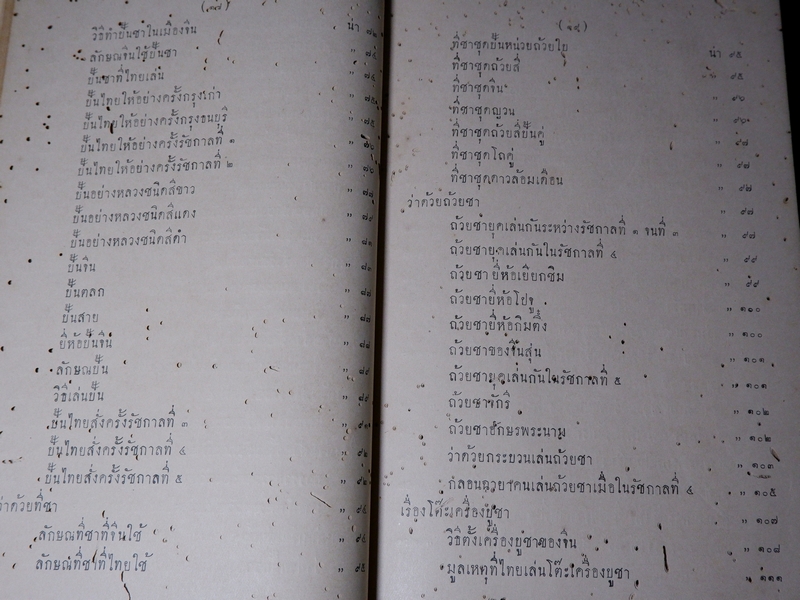 (๑๘)
วิธีทำปั้นชาในเมืองจีน น่า ๗๒
ลักษณจีนใช้ปั้นชา " ๗๔
ปั้นชาที่ไทยเล่น " ๗๕
ปั้นไทยให้อย่างครั้งกรุงเก่า " ๗๕
ปั้นไทยให้อย่างครั้งกรุงธนบุรี " ๗๕
ปั้นไทยให้อย่างครั้งรัชกาลที่ ๑ " ๗๖
ปั้นไทยให้อย่างครั้งรัชกาลที่ ๒ " ๗๖
ปั้นอย่างหลวงชนิดสีขาว " ๗๘
ปั้นอย่างหลวงชนิดสีแดง " ๗๙
ปั้นอย่างหลวงชนิดสีดำ " ๘๑
ปั้นจีน " ๘๑
ปั้นตลก " ๘๗
ปั้นสาย " ๘๘
ยี่ห้อปั้นจีน " ๘๘
ลักษณปั้น " ๘๙
วิธีเล่นปั้น " ๘๙
ปั้นไทยสั่งครั้งรัชกาลที่ ๓ " ๙๑
ปั้นไทยสั่งครั้งรัชกาลที่ ๔ " ๙๒
ปั้นไทยสั่งครั้งรัชกาลที่ ๕ " ๙๒
ว่าด้วยที่ชา " ๙๔
ลักษณที่ชาที่จีนใช้ " ๙๔
ลักษณที่ชาที่ไทยใช้ " ๙๕
(๑๙)
ที่ชาชุดปั้นหน่วยถ้วยใบ น่า ๙๕
ที่ชาชุดถ้วยสี่ " ๙๕
ที่ชาชุดจีน " ๙๖
ที่ชาชุดญวน " ๙๖
ที่ชาชุดถ้วยสี่ปั้นคู่ " ๙๗
ที่ชาชุดโถคู่ " ๙๗
ที่ชาชุดดาวล้อมเดือน " ๙๗
ว่าด้วยถ้วยชา " ๙๗
ถ้วยชายุคเล่นกันระหว่างรัชกาลที่ ๑ จนที่ ๓ " ๙๗
ถ้วยชายุคเล่นกันในรัชกาลที่ ๔ " ๙๙
ถ้วยชายี่ห้อเยียกซิม " ๙๙
ถ้วยชายี่ห้อโปจู " ๑๐๐
ถ้วยชายี่ห้อกิมตึ๋ง " ๑๐๐
ถ้วยชาของจีนสุ่น " ๑๐๑
ถ้วยชายุคเล่นกันในรัชกาลที่ ๕ " ๑๐๑
ถ้วยชาจักรี " ๑๐๒
ถ้วยชาอักษรพระนาม " ๑๐๒
ว่าด้วยกระบวนเล่นถ้วยชา " ๑๐๓
กลอนฉบายคนเล่นถ้วยชาเมื่อในรัชกาลที่ ๔ " ๑๐๕
เรื่องโต๊ะเครื่องบูชา " ๑๐๗
วิธีตั้งเครื่องบูชาของจีน " ๑๐๘
มูลเหตุที่ไทยเล่นโต๊ะเครื่องบูชา " ๑๑๑